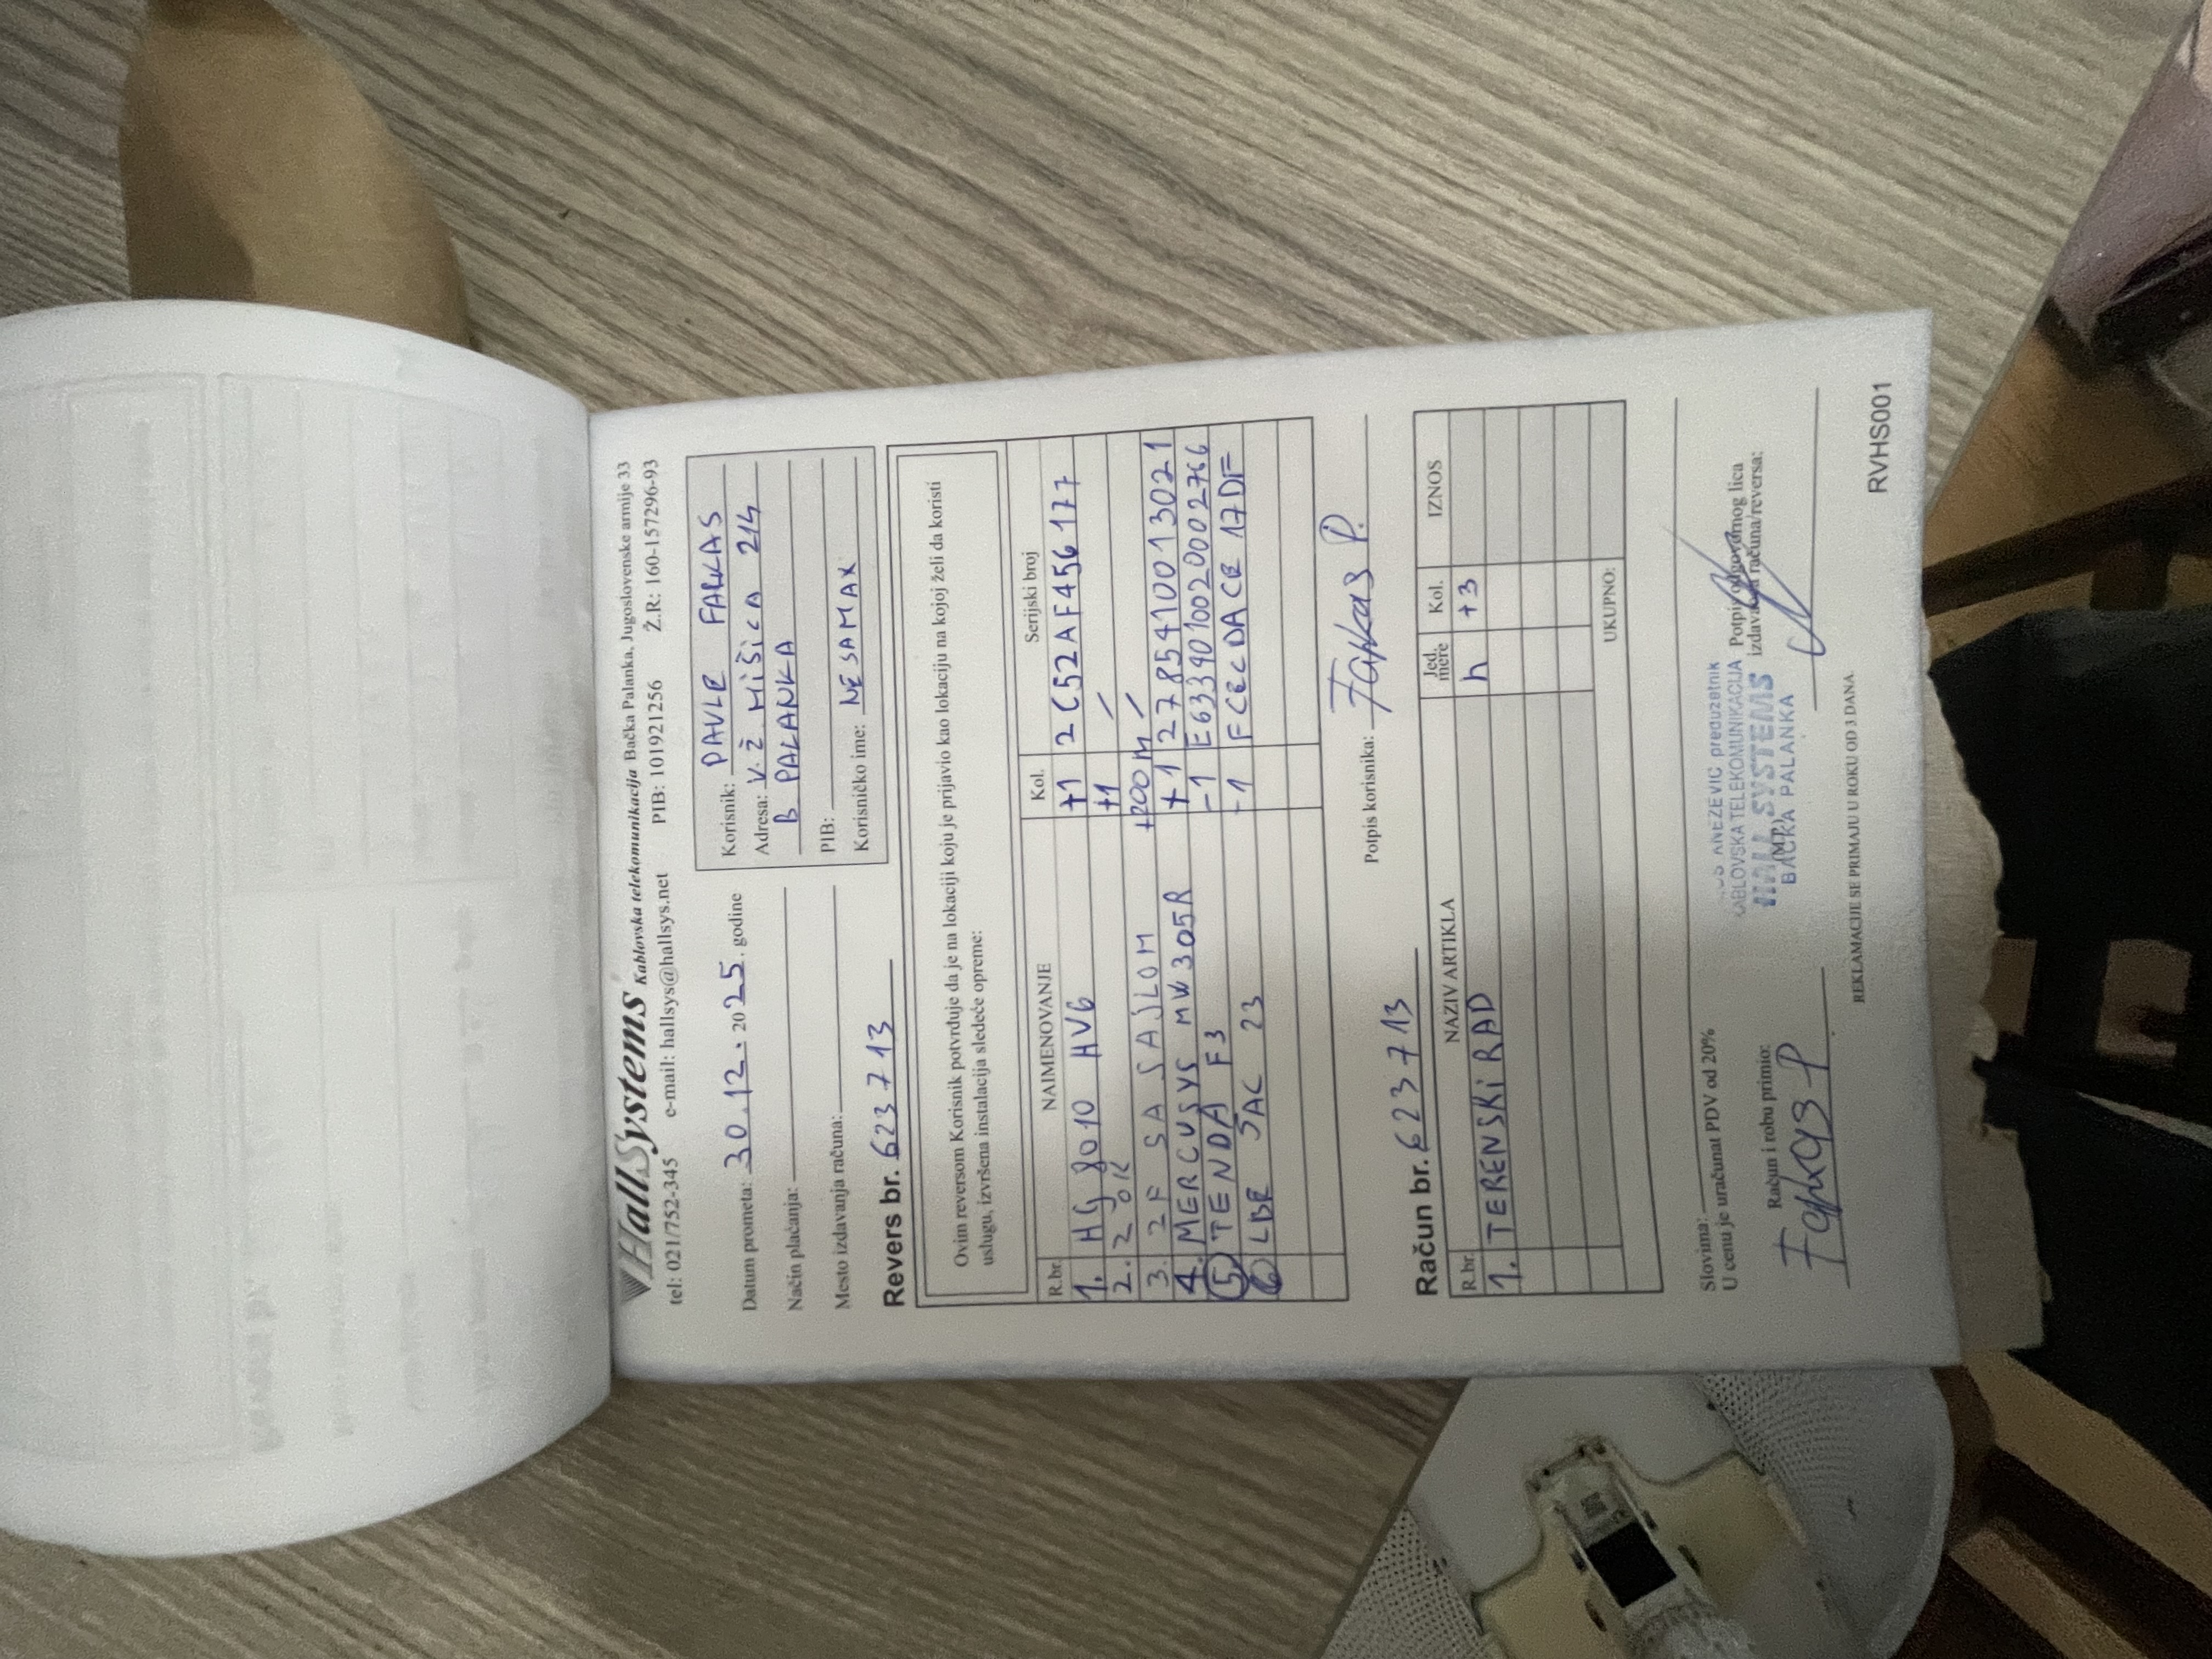 HallSystems Kablovska telekomunikacija Bačka Palanka, Jugoslovenske armije 33
tel: 021/752-345 e-mail: hallsys@hallsys.net PIB: 101921256 Ž.R: 160-157296-93
Datum prometa: 30.12. 2025. godine
Način plaćanja:
Mesto izdavanja računa:
Korisnik: PAVLE FARKAS
Adresa: V. Ž MIŠIĆA 214
B PALANKA
PIB:
Korisničko ime: NESAMAX
Revers br. 623713
Ovim reversom Korisnik potvrđuje da je na lokaciji koju je prijavio kao lokaciju na kojoj želi da koristi
uslugu, izvršena instalacija sledeće opreme:
R.br. NAIMENOVANJE Kol. Serijski broj
1. HG 8010 HV6 +1 2C52AF456177
2. 2 ZOK +1 /
3. 2F SA SAJLOM +200m /
4. MERCUSYS MW305R +1 2278541001 3021
5 TENDA F3 -1 E6339010020002766
6 LBE 5AC 23 -1 FCECDACE17DF
Potpis korisnika: Farkas P.
Račun br. 623713
R.br. NAZIV ARTIKLA Jed. mere Kol. IZNOS
1. TERENSKI RAD h +3
UKUPNO:
Slovima:
U cenu je uračunat PDV od 20%
Račun i robu primio:
Farkas P
ANEZEVIC preduzetnik
KABLOVSKA TELEKOMUNIKACIJA
HALL SYSTEMS
BAČKA PALANKA
(M.P.)
Potpis odgovornog lica
izdavaoca računa/reversa:
REKLAMACIJE SE PRIMAJU U ROKU OD 3 DANA.
RVHS001